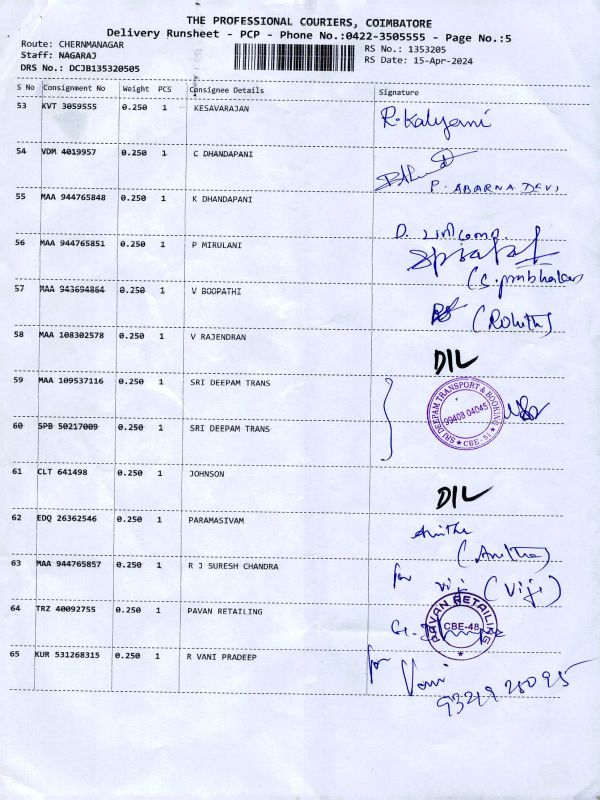 THE PROFESSIONAL COURIERS, COIMBATORE
Delivery Runsheet - PCP - Phone No.:0422-3505555 - Page No.:5
Route: CHERNMANAGAR
RS No.: 1353205
Staff: NAGARAJ
RS Date: 15-Apr-2024
DRS No.: DCJB135320505
S No Consignment No Weight PCS Consignee Details Signature
53 KVT 3059555 0.250 1 KESAVARAJAN R.Kalyani
54 VDM 4019957 0.250 1 C DHANDAPANI
P. ABARNA DEVI
55 MAA 944765848 0.250 1 K DHANDAPANI
D.
56 MAA 944765851 0.250 1 P MIRULANI
(S. prabhakar
57 MAA 943694864 0.250 1 V BOOPATHI
(Rohith)
58 MAA 108302578 0.250 1 V RAJENDRAN DIL
59 MAA 109537116 0.250 1 SRI DEEPAM TRANS
SRI DEEPAM TRANSPORT & BOOKING
99408 04045
CBE-51
60 SPB 50217009 0.250 1 SRI DEEPAM TRANS
61 CLT 641498 0.250 1 JOHNSON DIL
62 EDQ 26362546 0.250 1 PARAMASIVAM Anitha
(Anitha)
63 MAA 944765857 0.250 1 R J SURESH CHANDRA for Viji (Viji)
64 TRZ 40092755 0.250 1 PAVAN RETAILING
PAVAN RETAILING
CBE-48
65 KUR 531268315 0.250 1 R VANI PRADEEP for Vani